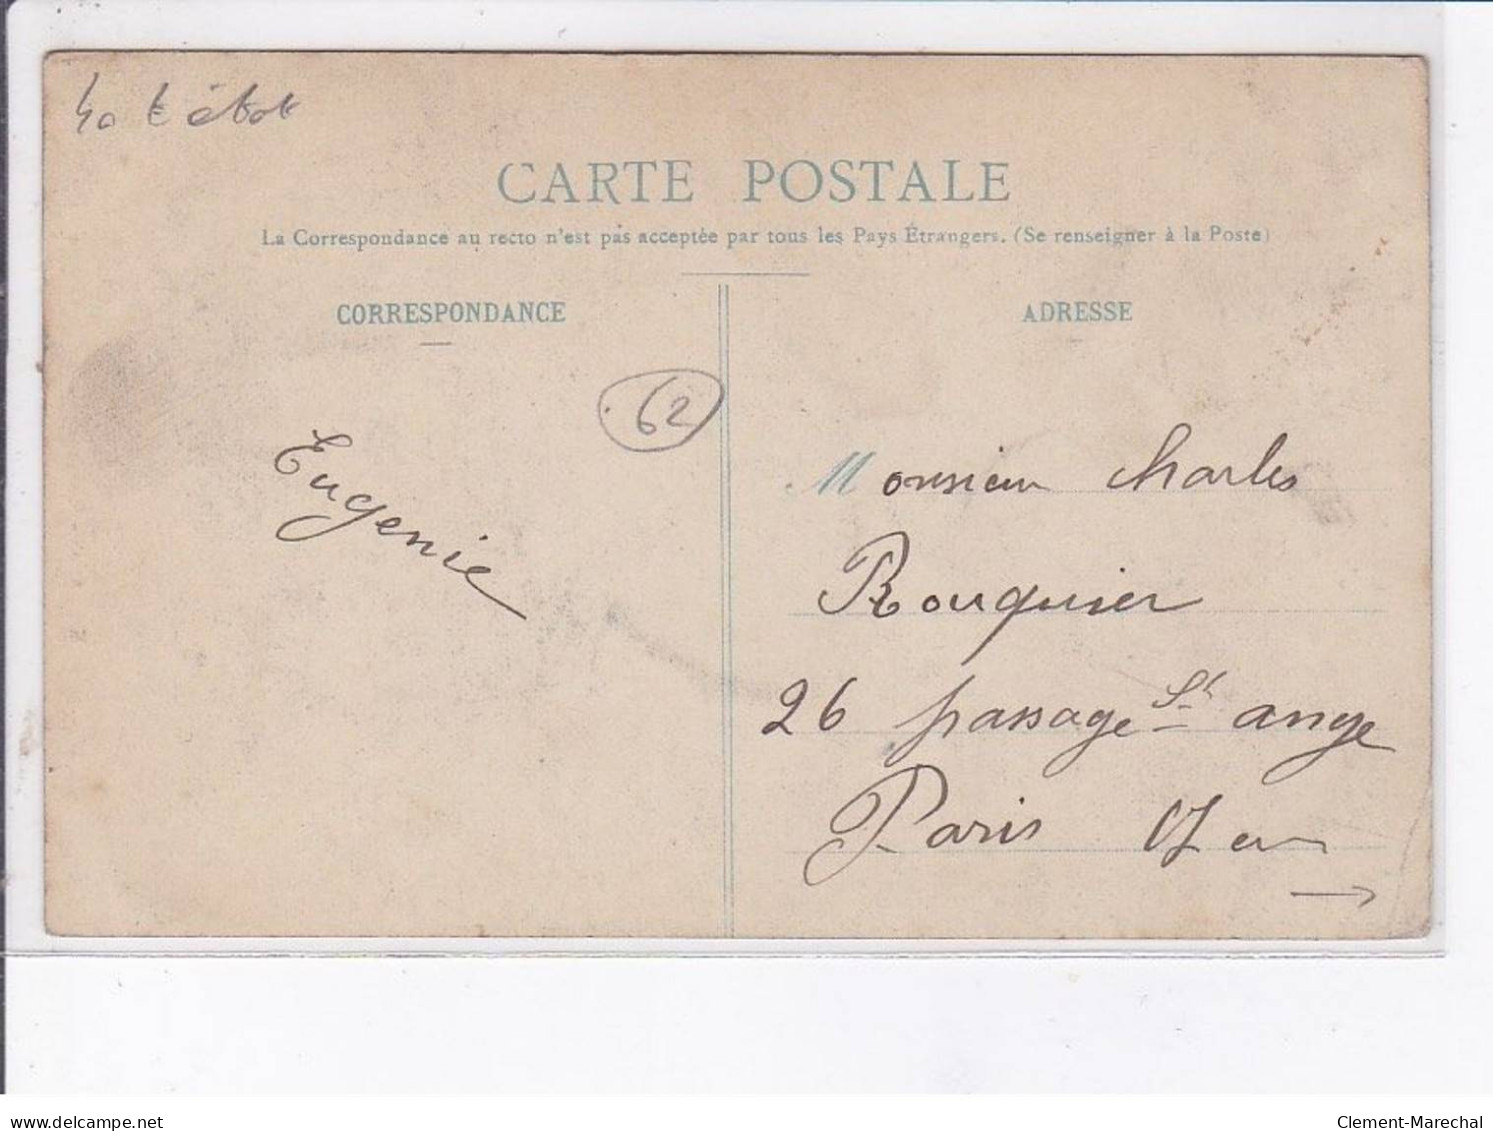 CARTE POSTALE
La Correspondance au recto n'est pas acceptée par tous les Pays Étrangers. (Se renseigner à la Poste)
CORRESPONDANCE
ADRESSE
62
Eugenie
Monsieur Charles
Rouquier
26 passage St ange
Paris
delcampe.net
Clement-Marechal